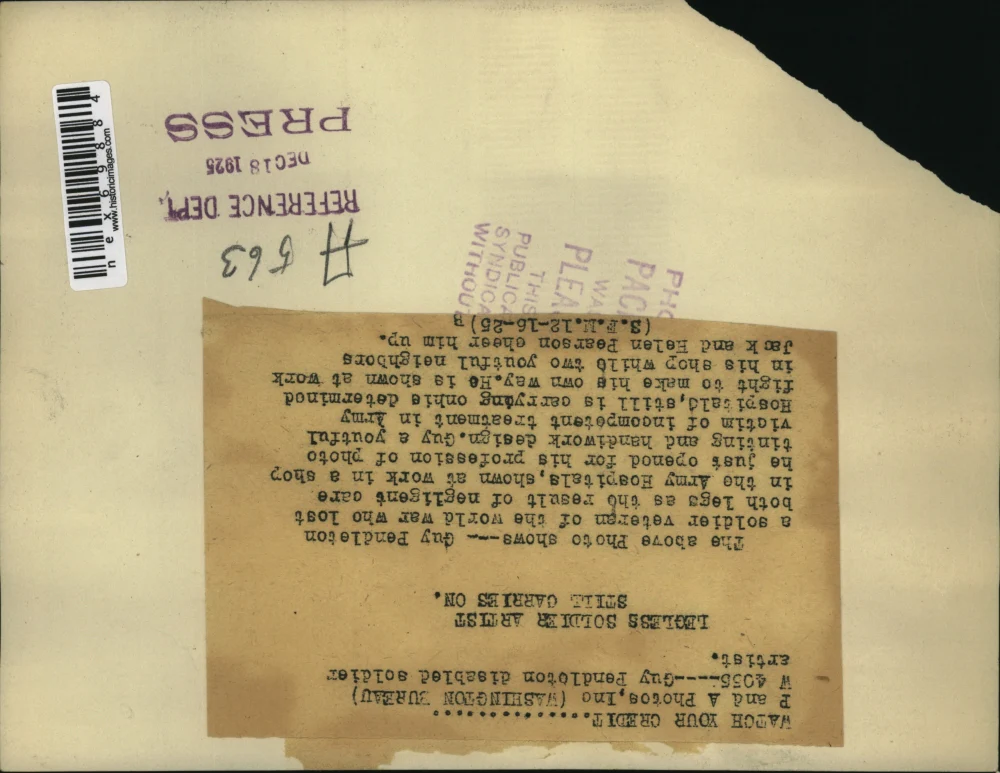 WATCH YOUR CREDIT................
P and A Photos,Inc (WASHINGTON BUREAU)
W 4035----Guy Pendleton disabled soldier
artist.
LEGLESS SOLDIER ARTIST
STILL CARRIES ON.
The above Photo shows--- Guy Pendleton
a soldier veteran of the world war who lost
both legs as the result of negligent care
in the Army Hospitals,shown at work in a shop
he just opened for his profession of photo
tinting and handiwork design.Guy a youtful
victim of incompetent treatment in Army
Hospitald,still is carrying onhis determined
fight to make his own way.He is shown at work
in his shop while two youtful neighbors
Jack and Helen Pearson cheer him up.
(S.F.M.12-16-25) B
A 563
REFERENCE DEPT.
DEC 18 1925
PRESS
PHO
PAC
WA
PLEA
THIS
PUBLICA
SYNDICA
WITHOU
www.historicimages.com
nex69884